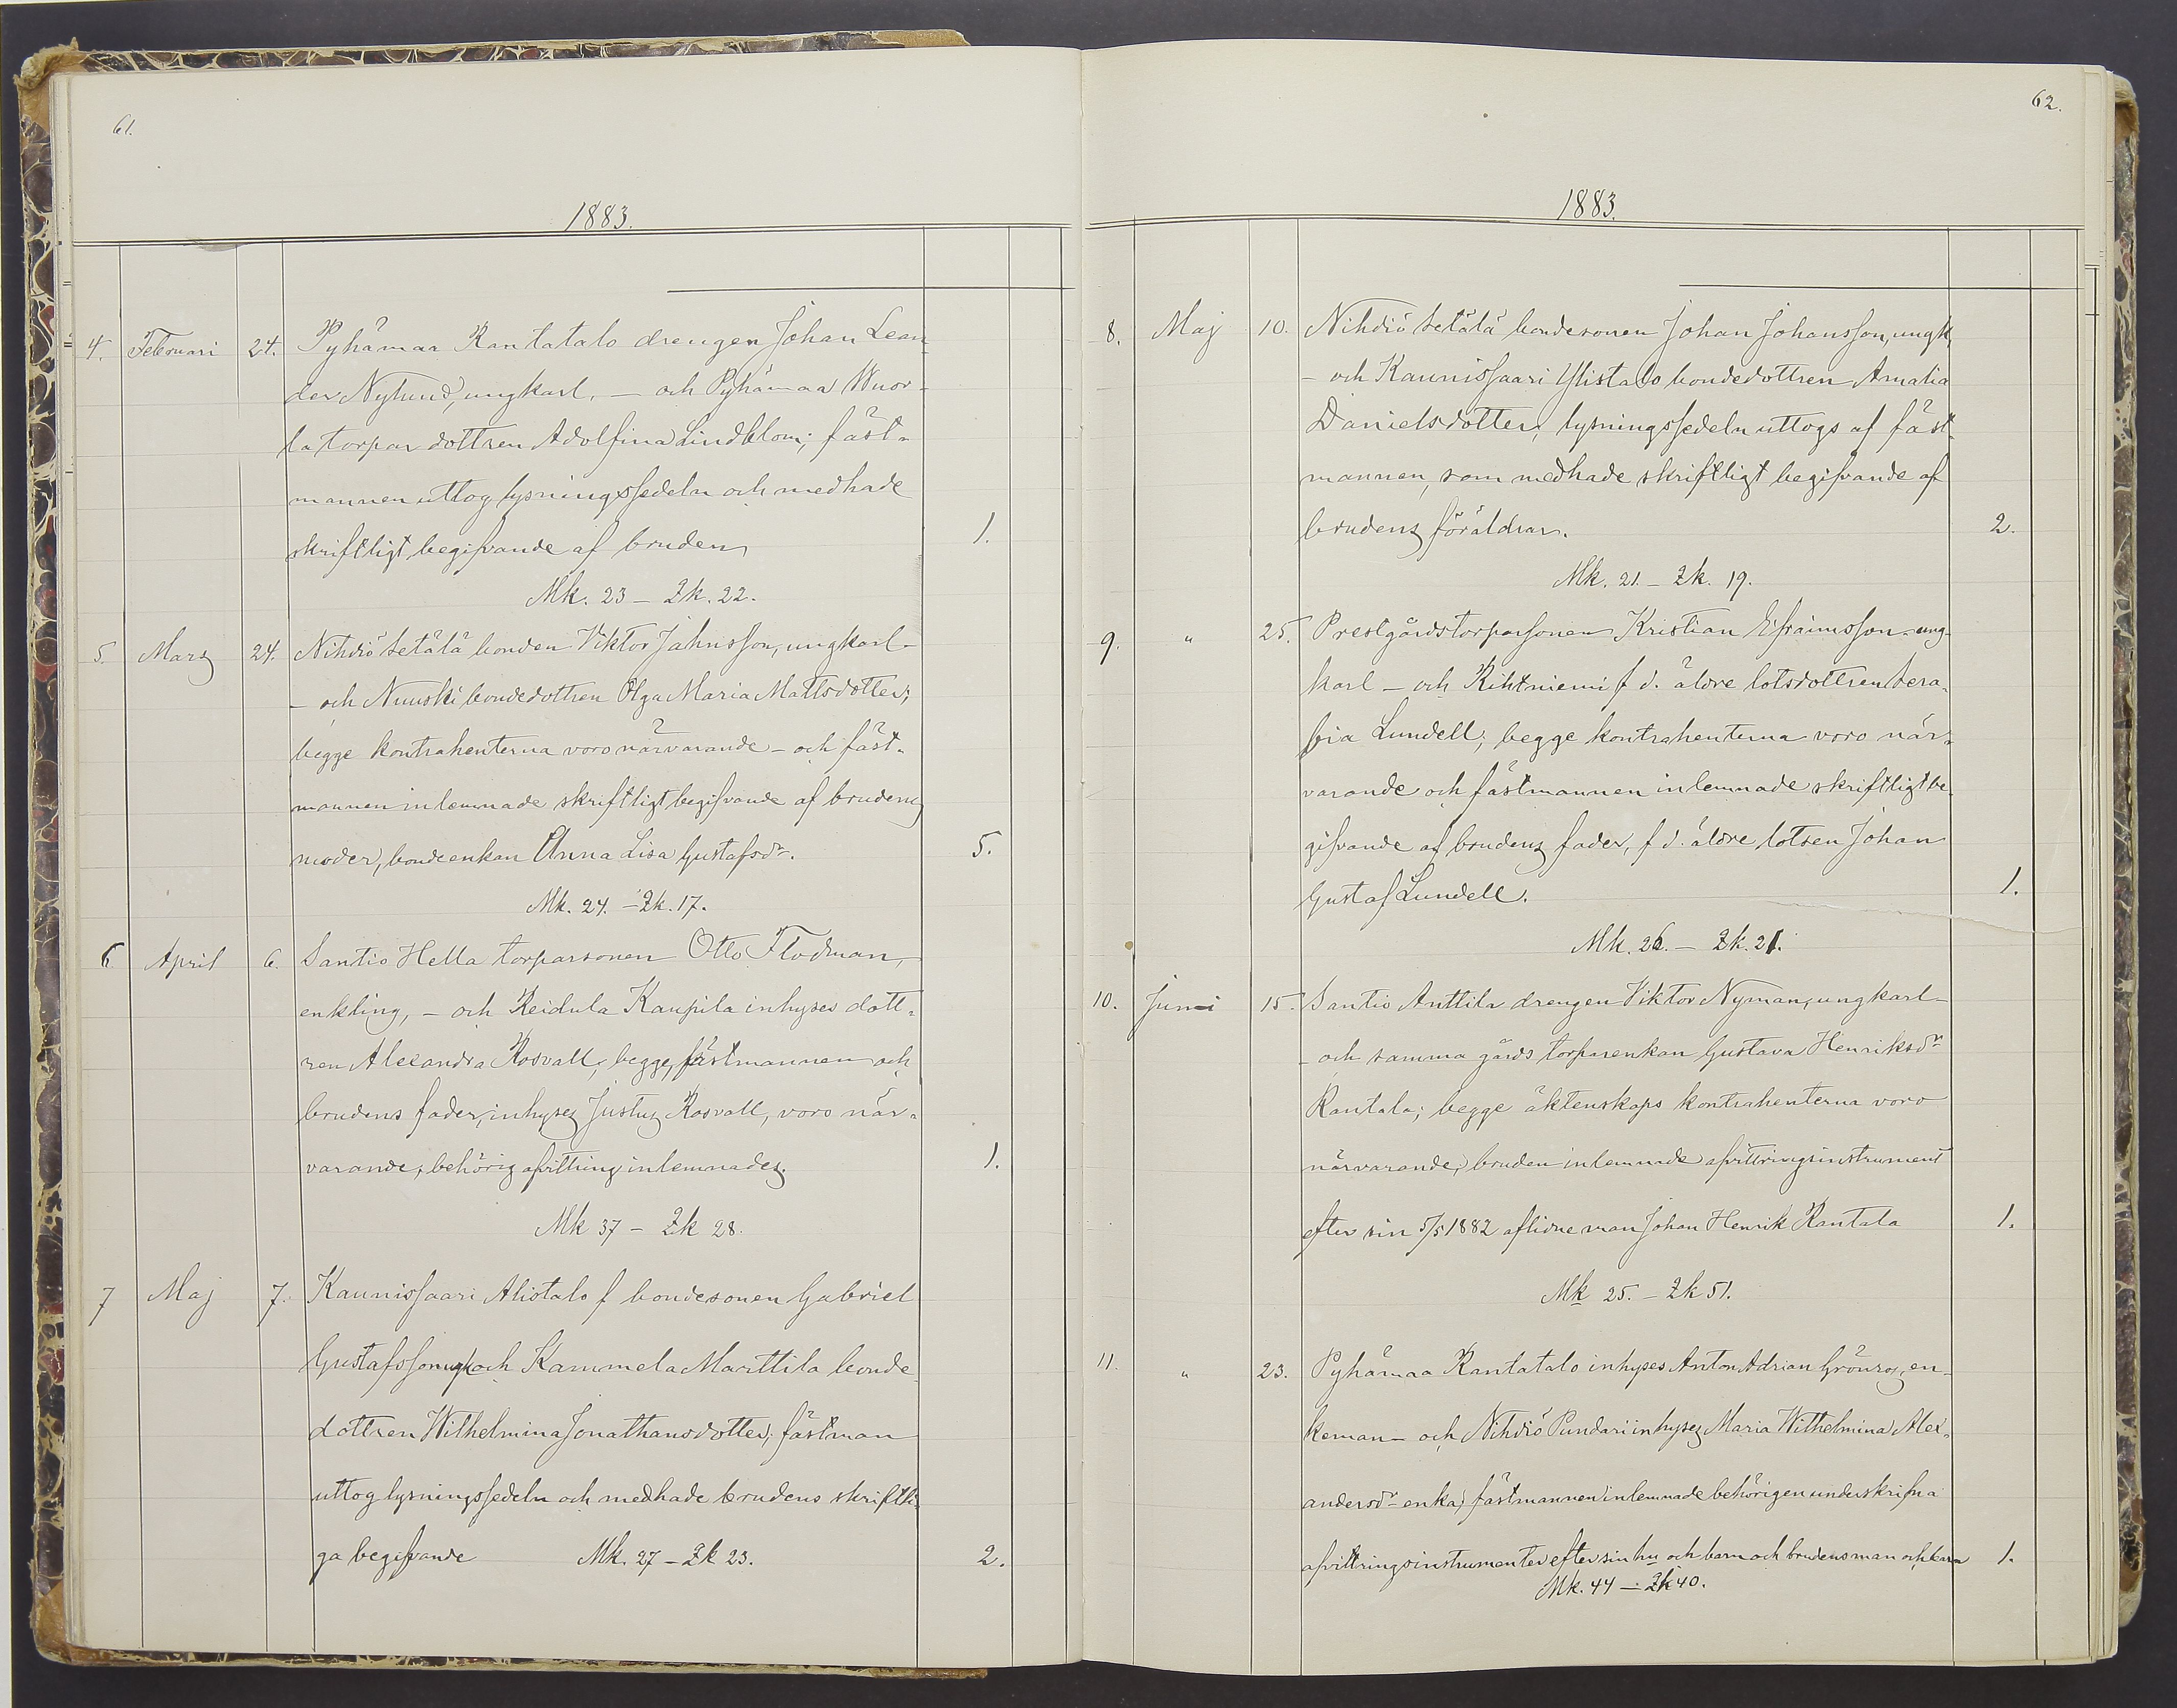 61.
1883.
4. Februari 24. Pyhämaa Rantatalo drengen Johan Lean-
der Nylund, ungkarl, — och Pyhämaa Wuor-
la torpar dottren Adolfina Lindblom; fäst-
mannen uttog lysningssedeln och medhade
skriftligt begifvande af bruden 1.
Mk. 23 — Zk. 22.
5. Mars 24. Nihdiö Setälä bonden Viktor Jahnsson, ungkarl
— och Nuuski bondedottren Olga Maria Mattsdotter;
begge kontrahenterna voro närvarande — och fäst-
mannen inlemnade skriftligt begifvande af brudens
moder, bondeenkan Anna Lisa Gustafsdr. 5.
Mk. 24. — Zk. 17.
6. April 6. Santio Hella torparsonen Otto Flodman,
enkling, — och Reidula Kaupila inhyses dott-
ren Alexandra Rosvall; begge, fästmannen och
brudens fader, inhyses Justus Rosvall, voro när-
varande, behörig afvittring inlemnades. 1.
Mk 37 — Zk 28.
7 Maj 7. Kaunissaari Alistalo f bondesonen Gabriel
Gustafsson ugk och Kammela Marttila bonde
dottren Wilhelmina Jonathansdotter; fästman
uttog lysningssedeln och medhade brudens skriftli-
ga begifvande Mk. 27 — Zk 23. 2.
62.
1883.
8. Maj 10. Nihdiö Setälä bondesonen Johan Johansson, ungk,
— och Kaunissaari Ylistalo bondedottren Amalia
Danielsdotter, lysningssedeln uttogs af fäst-
mannen, som medhade skriftligt begifvande af
brudens föräldrar. 2.
Mk. 21. — Zk. 19.
9. " 25. Prestgårdstorparsonen Kristian Efraimsson - ung-
karl — och Rihtniemi f d. äldre lotsdottren Sera-
fia Lundell; begge kontrahenterna voro när-
varande och fästmannen inlemnade skriftligt be-
gifvande af brudens fader, f d. äldre lotsen Johan
Gustaf Lundell. 1.
Mk. 26. — Zk. 21.
10. Juni 15. Santio Anttila drengen Viktor Nyman, ungkarl
— och samma gårds torparenkan Gustava Henriksdr
Rantala; begge äktenskaps kontrahenterna voro
närvarande, bruden inlemnade afvittringsinstrument
efter sin 5/5 1882 aflidne man Johan Henrik Rantala 1.
Mk 25. — Zk 51.
11. " 23. Pyhämaa Rantatalo inhyses Anton Adrian Grönros, en-
keman — och Nihdiö Pundari inhyses Maria Wilhelmina Alex-
andersdr enka; fästmannen inlemnade behörigen underskrifna
afvittringsinstrumenter efter sin hu och barn och brudens man och barn 1.
Mk. 44 — Zk 40.